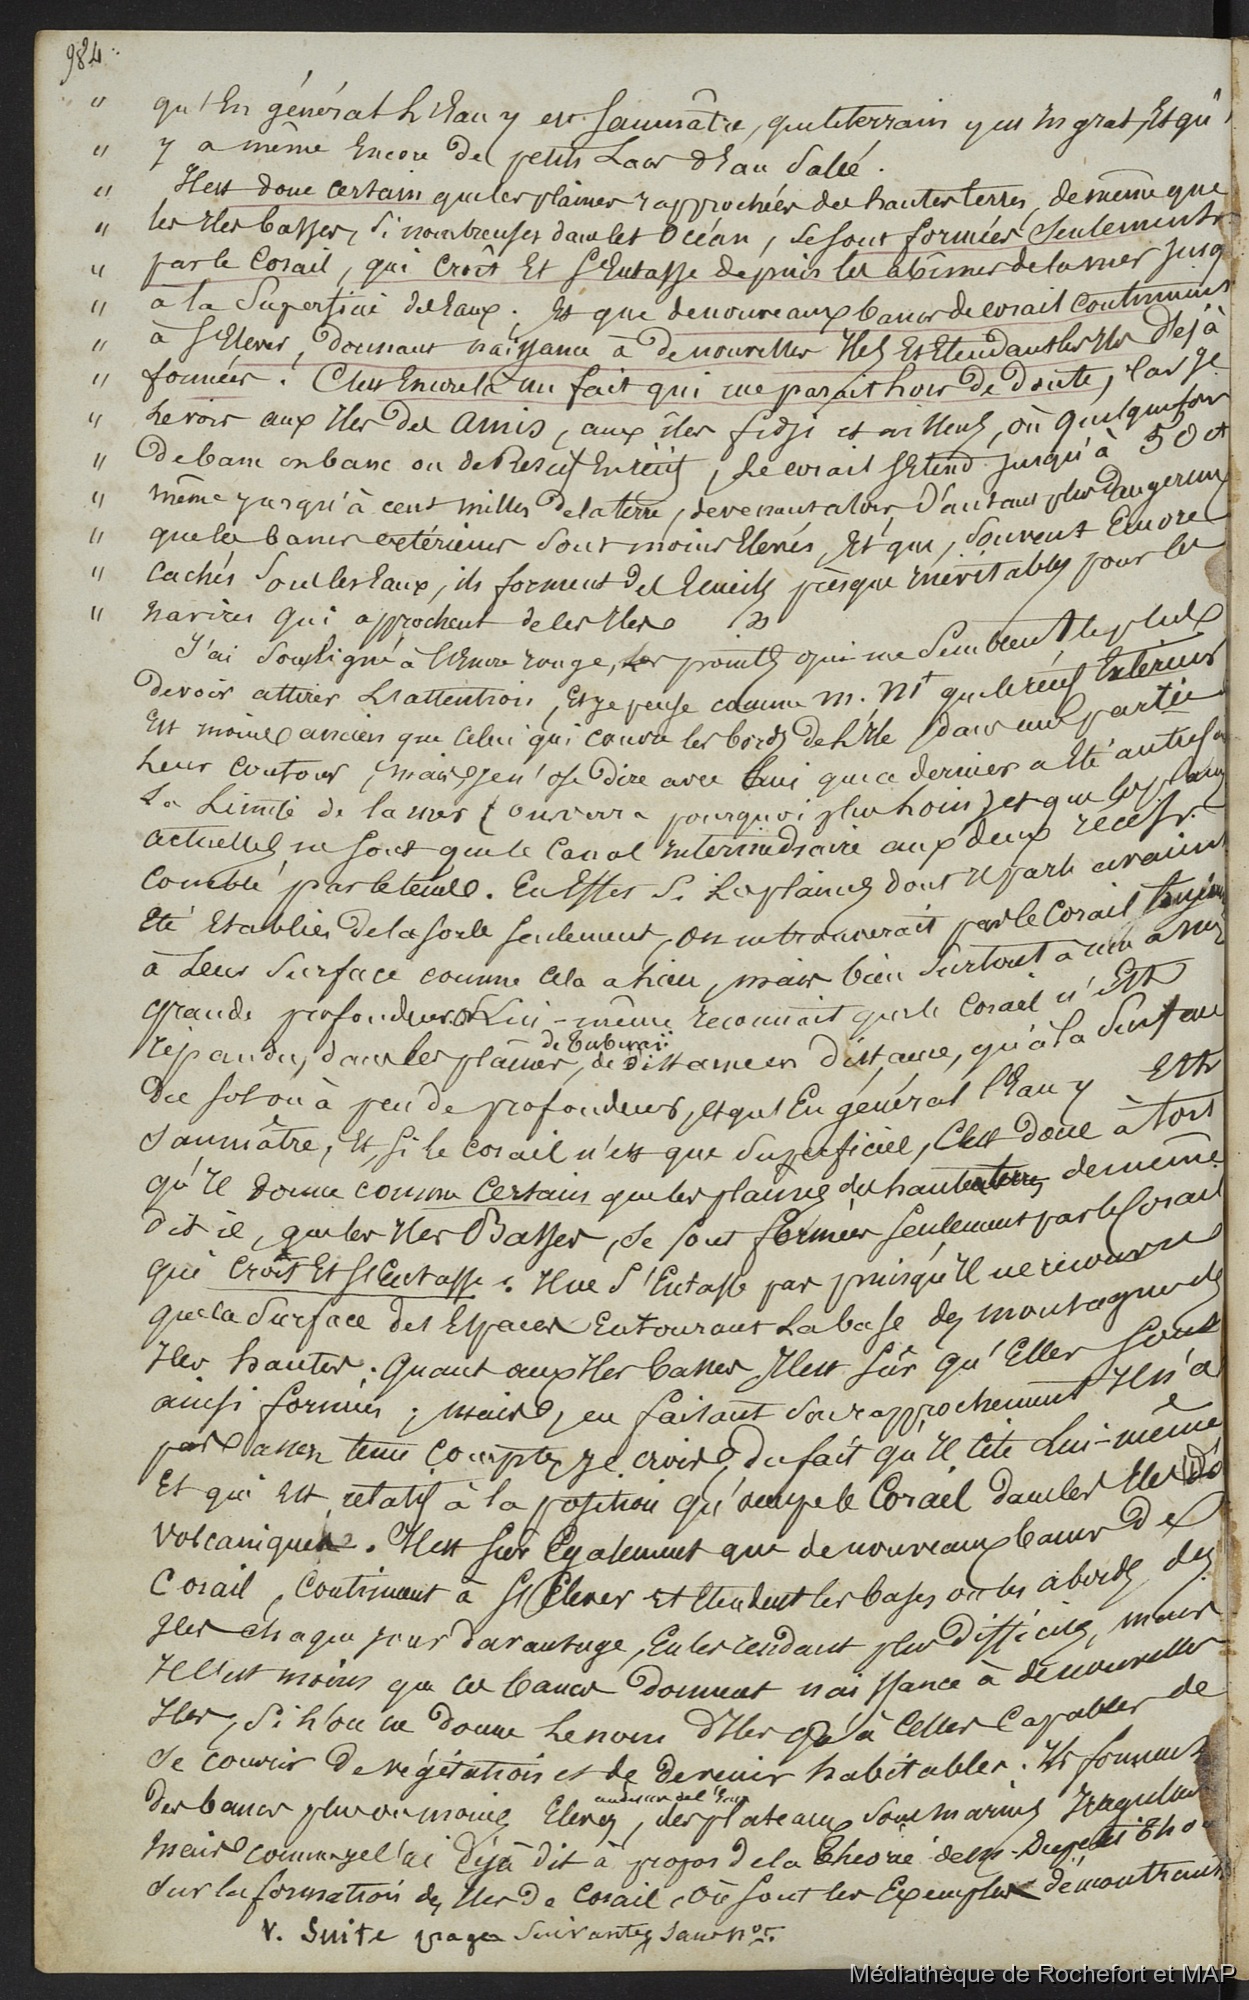 984
" qu'En général L'Eau y est Saumâtre, que le terrain y est Ingrat, Et qu'
" y a même Encore des petits Lacs d'Eau Salée.
" Il est donc certain que les plaines rapprochées des hautes terres, de même que
" les Iles basses, Si nombreuses dans les Océan, se sont formées Seulement
" par le Corail, qui croît Et S'Entasse depuis les abîmes de la mer jusq
" à la Superficie des Eaux; Et que de nouveaux bancs de corail continuent
" à S'Elever, donnant naissance à de nouvelles Iles Et Etendant les Iles Déjà
" formées. C'est Encore là un fait qui me paraît hors de doute, car je
" Le vois aux Iles des Amis, aux îles fidji et ailleurs, où quelquefois
" De banc en banc ou de Récif En récif, Le corail S'Etend jusqu'à 50 et
" même jusqu'à cent milles de la terre, devenant alors D'autant plus Dangereux
" que les bancs extérieurs Sont moins Elevés, Et que, Souvent Encore
" Cachés Sous les Eaux, ils forment des Ecueils presque Inévitables pour les
" navires qui approchent de les Iles »
J'ai Souligné à l'Encre rouge, les points qui me Semblent, le plus
Devoir attirer L'attention, Et je pense comme M. Mt que le récif Intérieur
Est moins ancien que Celui qui couvre les bords de L'Ile dans une partie
Leur contour, mais je n'ose Dire avec Lui que ce dernier a Eté autrefois
La Limite de la mer (on verra pourquoi plus Loin) et que les plaines
actuelles ne sont que le Canal Intermédiaire aux deux récifs
Comblé par le temps. En Effet Si Les plaines dont Il parle avaient
Eté Etablies de la sorte seulement, On ne trouverait pas le Corail toujours
à Leur Surface comme cela a Lieu, mais bien Surtout à une assez
grande profondeur. Or Lui-même reconnaît que le Corail n'Est
répandu, dans les plaines de Tubuaï, de Distance en Distance, qu'à la Surface
Du sol où à peu de profondeur, Et qu'En général l'Eau y Est
Saumâtre, Et, Si le corail n'est que Superficiel, C'est donc à tort
qu'Il Donne comme Certain que les plaines des hautes terres, de même
dit il, que les Iles Basses, Se sont formées Seulement par le Corail
qui Croît Et S'Entasse. Il ne S'Entasse pas puisqu'Il ne recouvre
que la Surface des Espaces Entourant La base des montagnes des
Iles hautes. Quant aux Iles basses, Il est Sûr qu'Elles Sont
ainsi formées; Mais, en faisant Son rapprochement Il n'a
pas assez tenu Compte, je crois, du fait qu'Il Cite Lui-même
Et qui Est relatif à la position qu'occupe le Corail dans les Iles
Volcaniques. Il est Sûr Egalement que de nouveaux bancs de
Corail, Continuent à S'Elever Et Etendent les bases ou les abords des
Iles chaque jour davantage, En les rendant plus Difficiles, mais
Il l'est moins que ces bancs donnent naissance à de nouvelles
Iles, Si L'on ne donne Le nom D'Iles qu'à Celles Capables de
Se couvrir De végétation et de devenir habitables. Ils forment
Des bancs plus ou moins Elevés au dessus de l'Eau, des plateaux Sous marins Irréguliers
Mais comme je l'ai Déjà dit à propos de la théorie de M. Dupetit Thou
Sur la formation des Iles de Corail, Où Sont les Exemples démontrant
V. Suite pages Suivantes, Sans nos.
Médiathèque de Rochefort et MAP